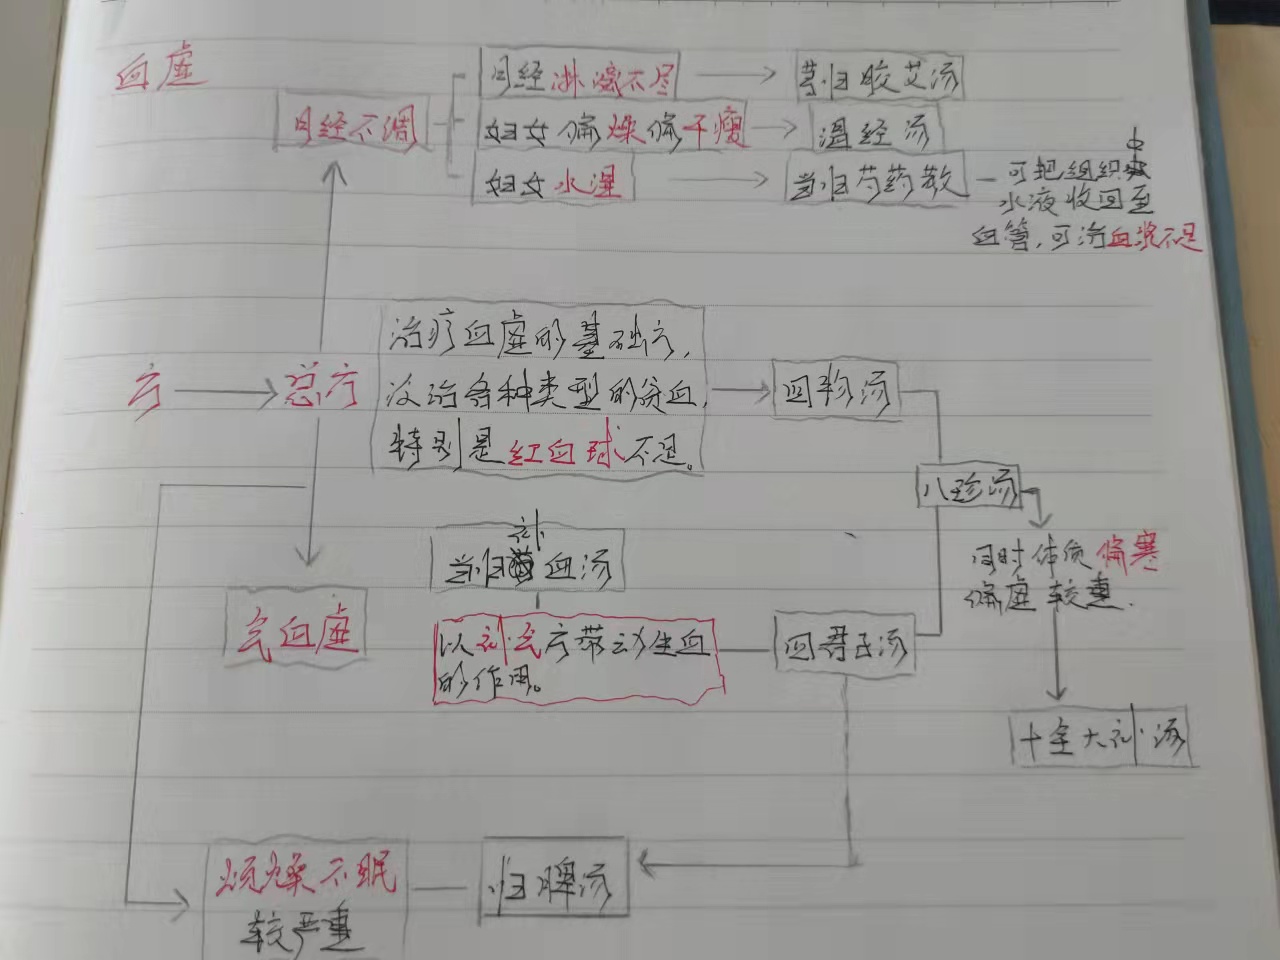 血虚
月经不调
月经淋漓不尽
芎归胶艾汤
妇女偏燥偏干瘦
温经汤
妇女水湿
当归芍药散
可把组织中
水液收回至
血管,可治血浆不足
方
总方
治疗血虚的基础方,
泛治各种类型的贫血,
特别是红血球不足。
四物汤
八珍汤
同时体质偏寒
偏虚较重.
当归补血汤
气血虚
以补气方带动生血
的作用。
四君子汤
十全大补汤
烦燥不眠
较严重
归脾汤